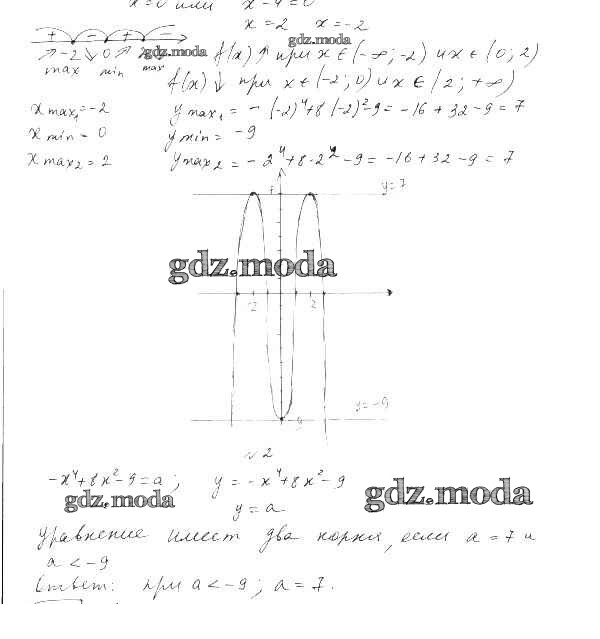 x=0 или x²-4=0
x=2 x=-2
+ - + -
↗ -2 ↘ 0 ↗ gdz.moda
max min max
gdz.moda
f(x) ↑ при x ∈ (-∞; -2) и x ∈ (0; 2)
f(x) ↓ при x ∈ (-2; 0) и x ∈ (2; +∞)
x max₁ = -2 y max₁ = -(-2)⁴+8(-2)²-9 = -16+32-9 = 7
x min = 0 y min = -9
x max₂ = 2 y max₂ = -2⁴+8·2²-9 = -16+32-9 = 7
7 y=7
gdz.moda
-2 2
y=-9
-9
№2
-x⁴+8x²-9=a; y=-x⁴+8x²-9
gdz.moda gdz.moda
y=a
Уравнение имеет два корня, если a=7 и
a<-9
Ответ: при a<-9; a=7.